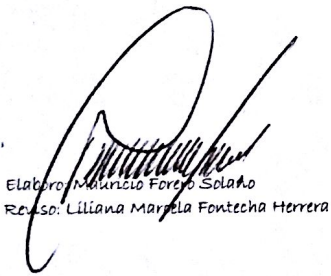 Elaboro: Mauricio Forero Solano
Reviso: Liliana Marcela Fontecha Herrera